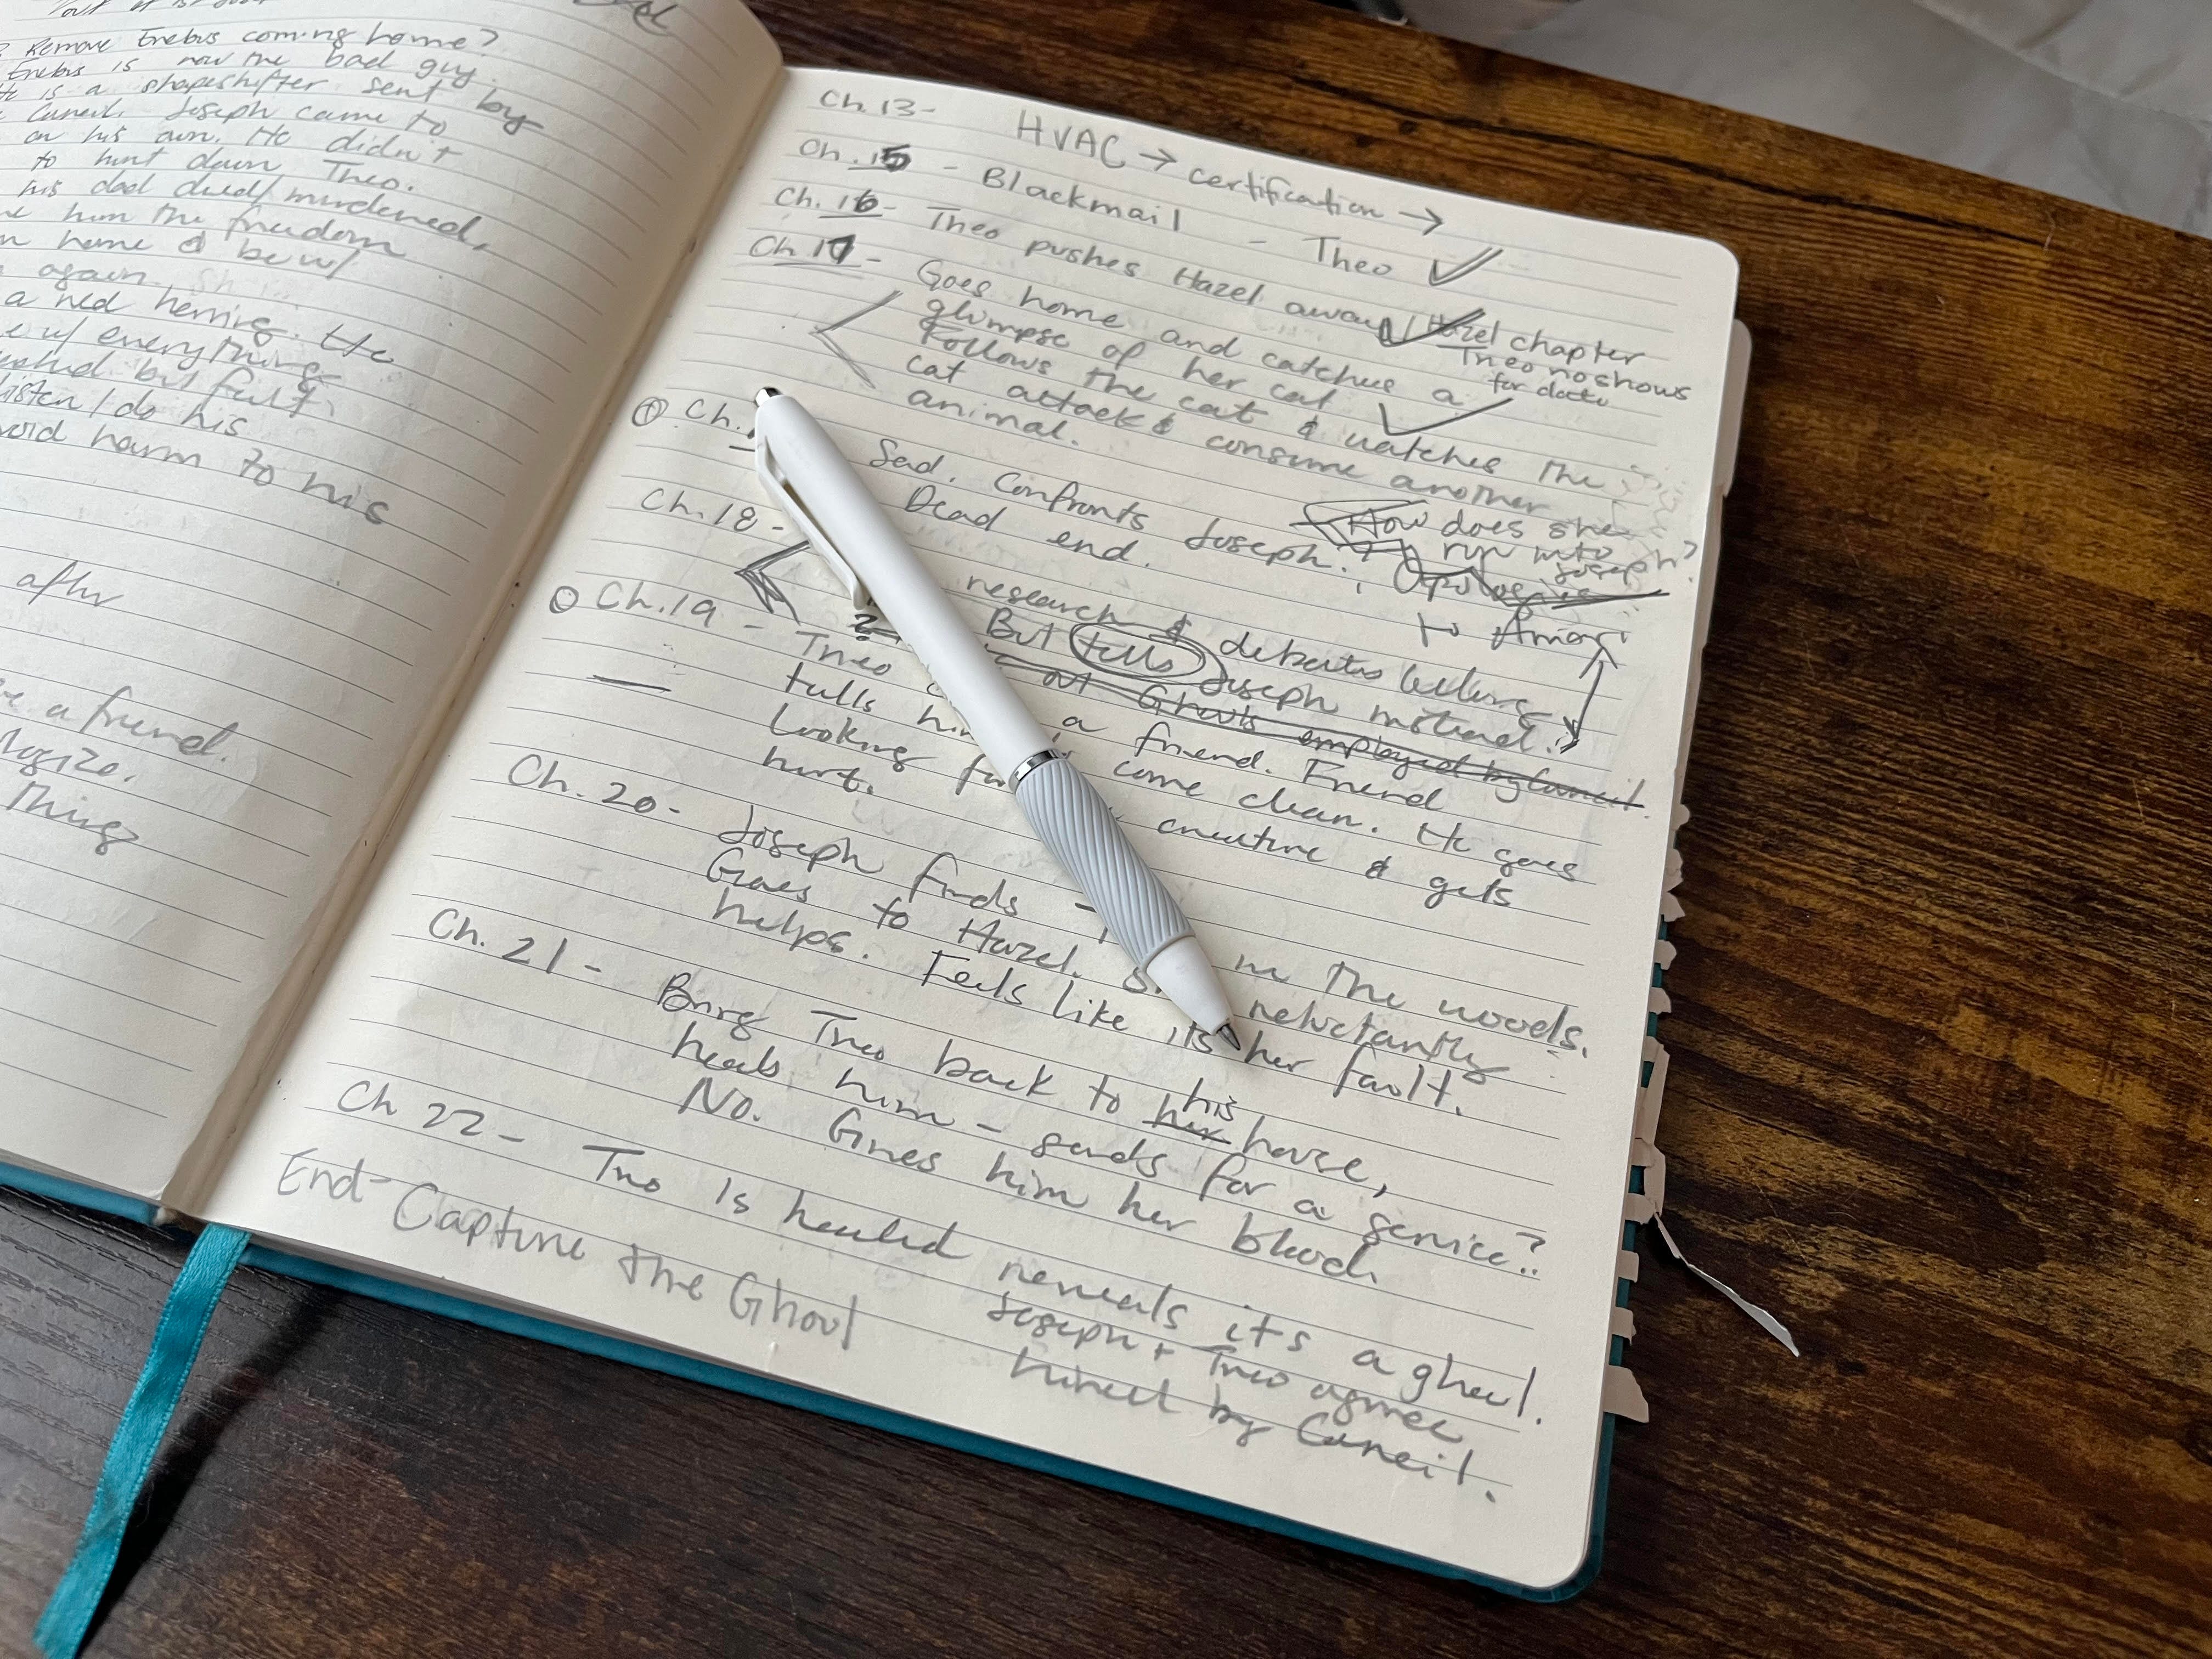 ? Remove Erebus coming home?
Erebus is now the bad guy.
He is a shapeshifter sent by
Council. Joseph came to
on his own. He didn't
to hunt down Theo.
his dad died/murdered,
him the freedom
home & be w/
again.
a red herring. He
w/ everything
but felt
listen/do his
harm to his
after
a friend.
Things
Ch. 13-
HVAC → certification →
Ch. 15 - Blackmail - Theo
Ch. 16- Theo pushes Hazel away
Hazel chapter
Theo no shows
for date
Ch 17 - Goes home and catches a
glimpse of her cat
Follows the cat & watches the
cat attack & consume another
animal.
Ch.
Sad. Confronts Joseph?
Dead end.
How does she
run into
Joseph?
to Amari
Ch. 18 -
research & debates telling
But tells Joseph instead.
out Ghouls employed by Council.
Ch. 19 - Theo a friend. Friend
tells come clean. He goes
Looking creature & gets
hurt.
Ch. 20- Joseph finds in the woods.
Goes to Hazel. reluctantly
helps. Feels like its her fault.
Ch. 21 - Bring Theo back to her his house,
heals him - sends for a service?
No. Gives him her blood.
Ch 22 - Theo is healed reveals its a ghoul.
Joseph + Theo agree
hired by Council.
End- Capture the Ghoul